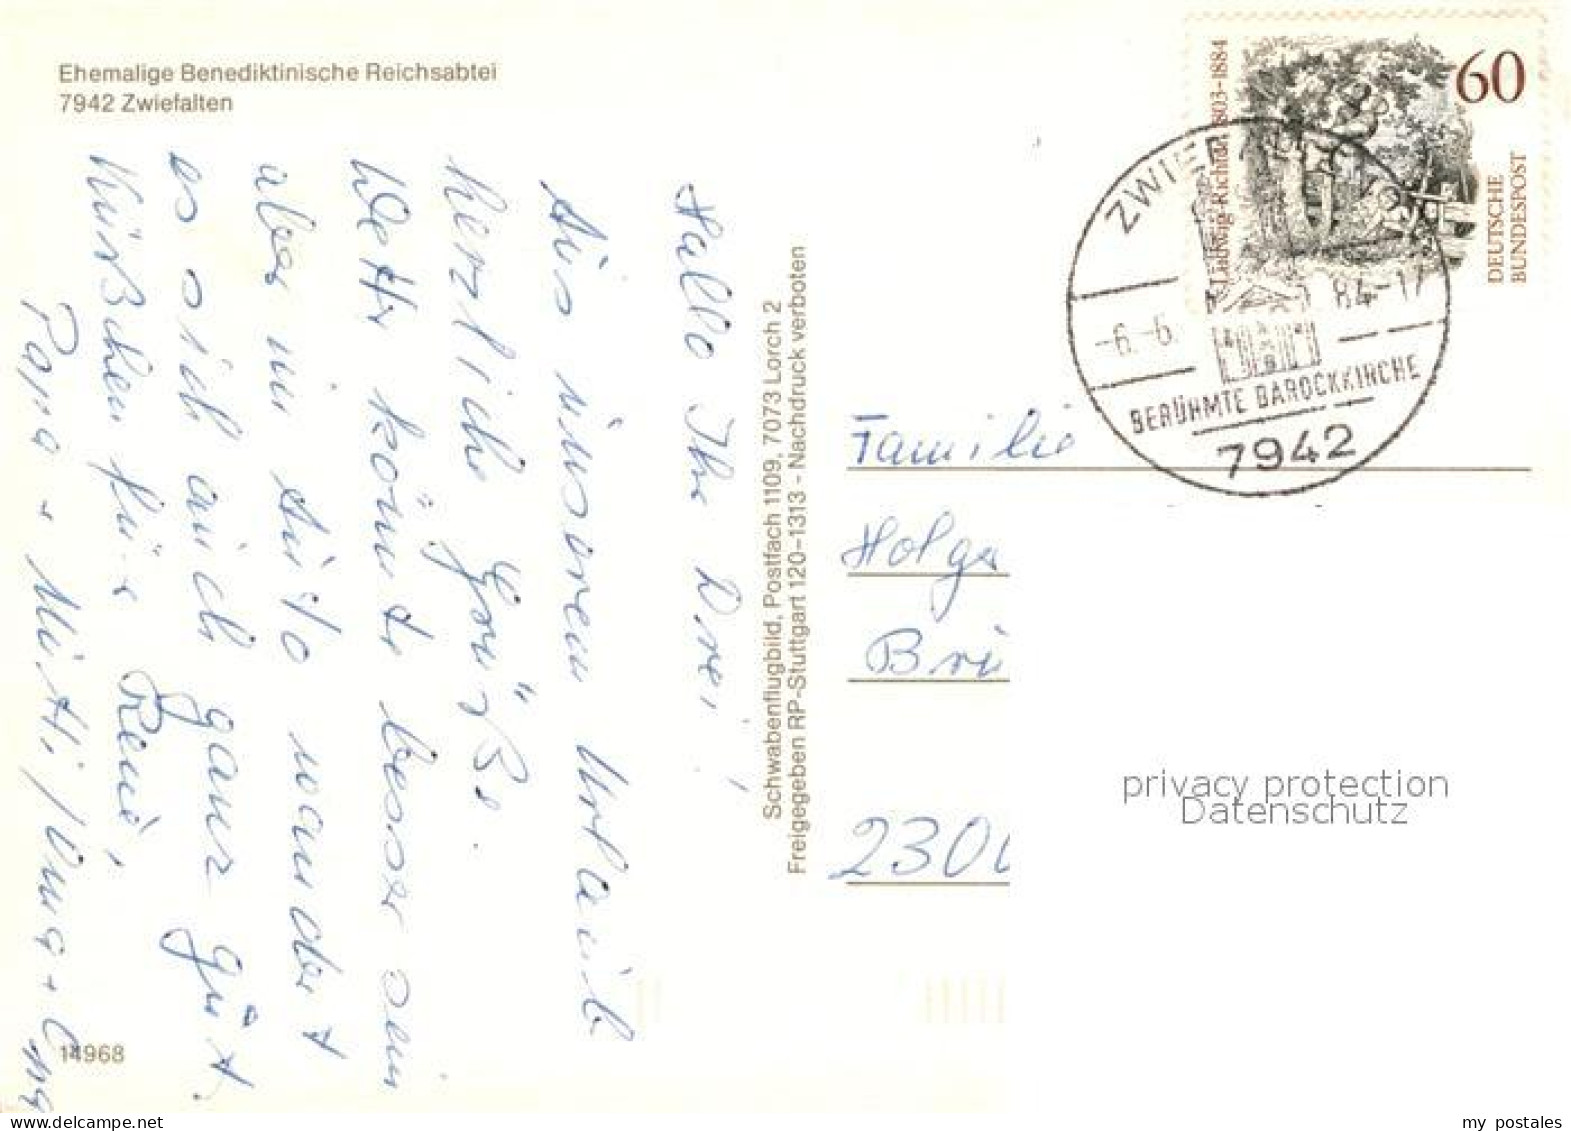 Ehemalige Benediktinische Reichsabtei
7942 Zwiefalten
Hallo Ihr Drei!
Aus unserem Urlaub
herzliche Grüße.
Wetter könnte besser sein
aber mit Auto wandert
es sich auch ganz gut.
Küßchen für René,
Papa + Mutti / Oma + Opa
14968
Schwabenflugbild, Postfach 1109, 7073 Lorch 2
Freigegeben RP-Stuttgart 120-1313 - Nachdruck verboten
60
DEUTSCHE
BUNDESPOST
Ludwig Richter 1803-1884
ZWIEF
-6.-6. 84-17
BERÜHMTE BAROCKKIRCHE
7942
Familie
Holger
Brü
2300
privacy protection
Datenschutz
my postales